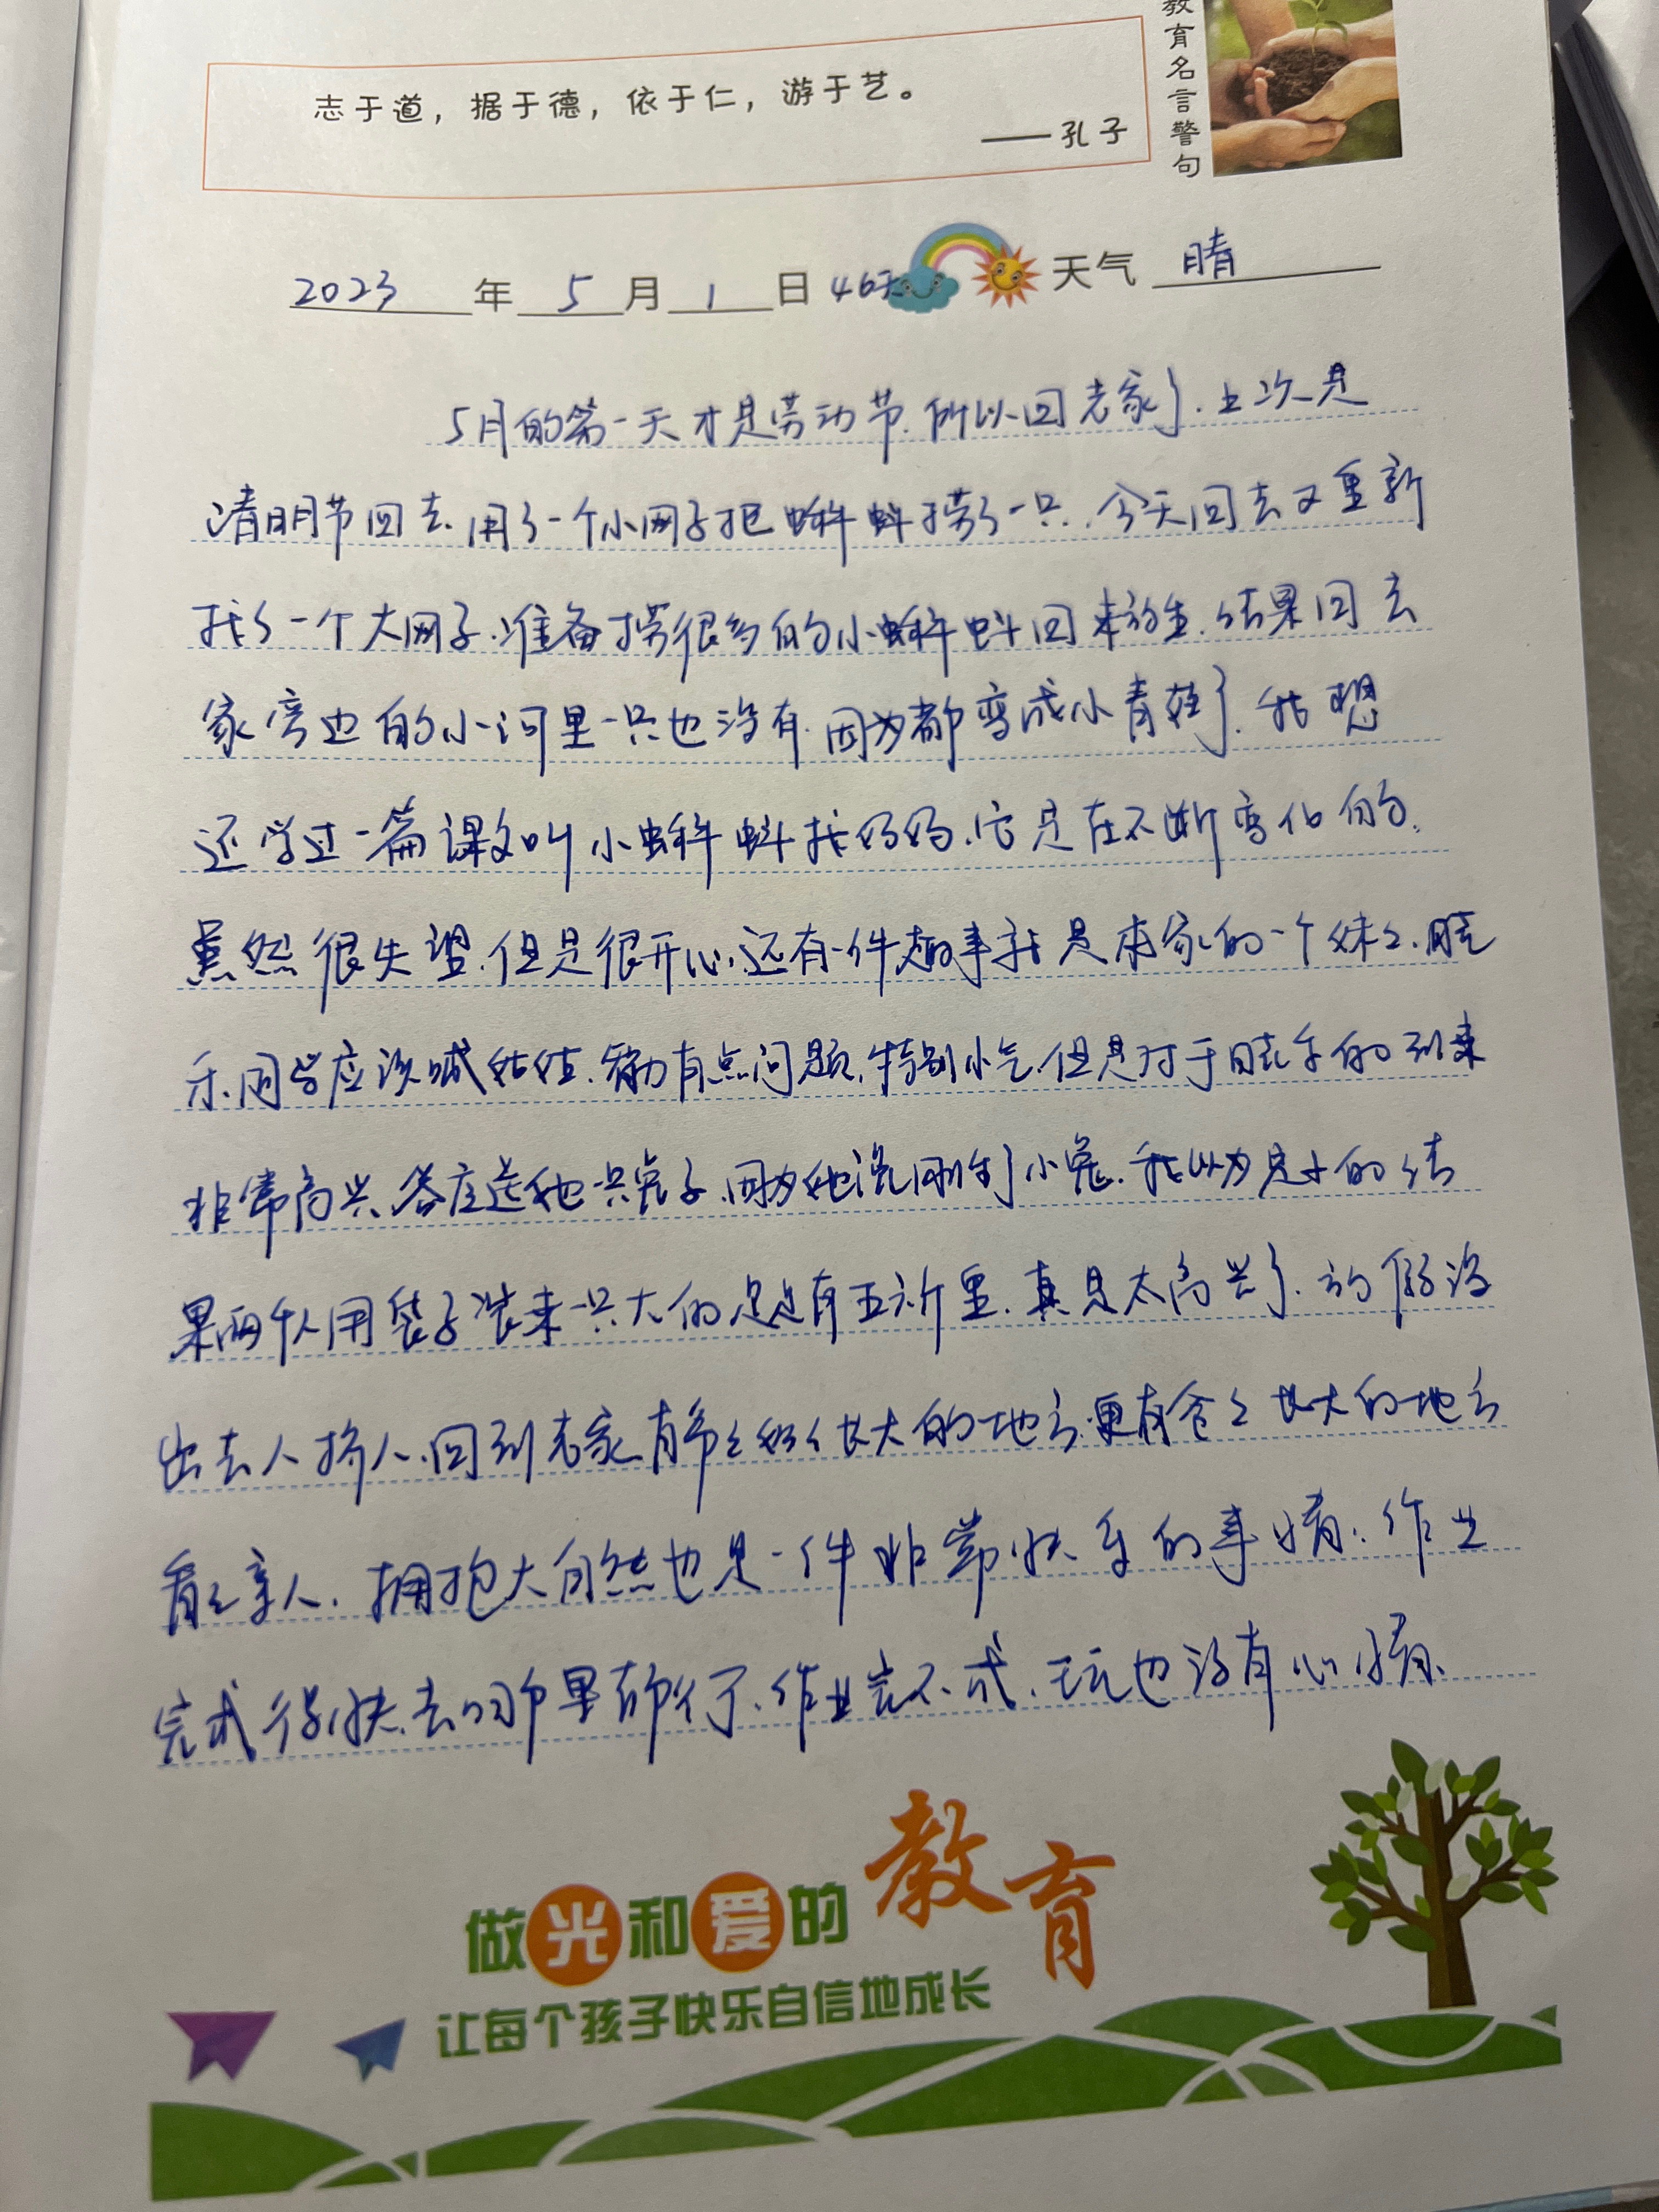 教育名言警句
志于道，据于德，依于仁，游于艺。
——孔子
2023年5月1日 46天 天气 晴
5月的第一天才是劳动节.所以回老家了.上次是
清明节回去.用了一个小网子把蝌蚪捞了一只.今天回去又重新
找了一个大网子.准备捞很多的小蝌蚪回来放生.结果回去
家旁边的小河里一只也没有.因为都变成小青蛙了.我想
还学过一篇课文叫小蝌蚪找妈妈.它是在不断变化的.
虽然很失望.但是很开心.还有一件趣事就是本家的一个妹々.晓
乐.同学应该喊姑姑.智力有点问题.特别小气.但是对于晓乐的到来
非常高兴.答应送他一只兔子.因为她说刚生了小兔.我以为是小的结
果两个人用袋子装来一只大的足足有五六斤重.真是太高兴了.放假没
出去人挤人.回到老家.有爷々奶々长大的地方.更有爸々长大的地方
看々亲人.拥抱大自然也是一件非常快乐的事情.作业
完成得快.去哪里都行.作业完不成.玩也没有心情.
做光和爱的教育
让每个孩子快乐自信地成长